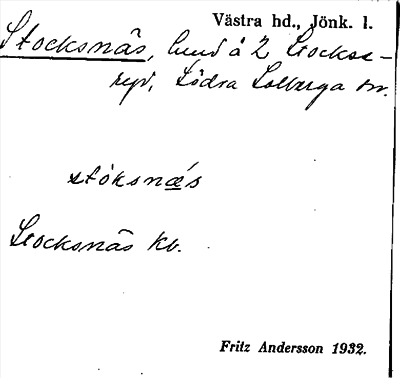 Västra hd., Jönk. l.
Stocksnäs, lund å 2 Stocks-
ryd, Södra Solberga sn.
stòksnæ̀s
Stocksnäs Kv.
Fritz Andersson 1932.